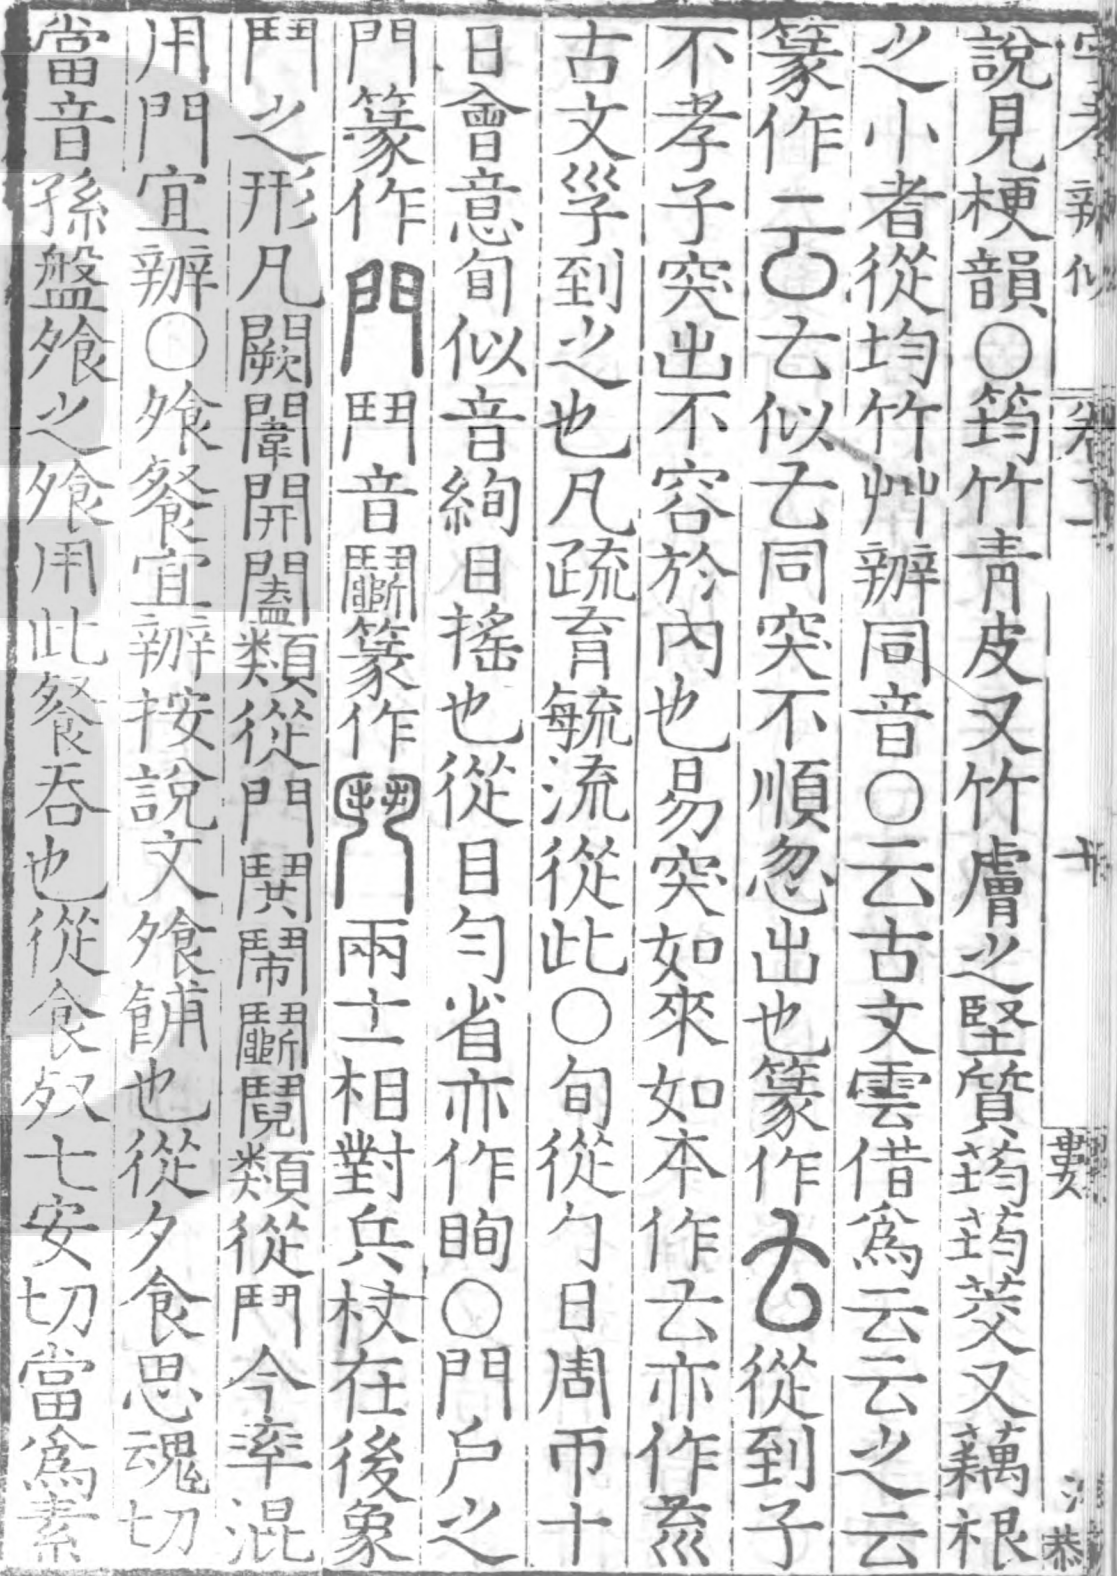 說見梗韻○筠竹靑皮又竹膚之堅質䓿䓿茭又藕根
之小者從均竹艸辦同音○云古文雲借爲云云之云
篆作〓𠫓似𠫓同突不順忽出也篆作𠫓從到子
不孝子突出不容於內也易突如來如本作𠫓亦作𠫬
古文㜽到之也凡疏育毓流從此○旬從勹日周帀十
日會意旬似音絢目搖也從目勻省亦作眴○門戶之
門篆作門鬥音鬭篆作鬥兩士相對兵杖在後象
鬥之形凡闕闈開闔類從門鬨鬧鬭鬩類從鬥今率混
用門宜辦○飱餐宜辦按說文飱餔也從夕食思魂切
當音孫盤飱之飱用此餐吞也從食𣦼七安切當爲素